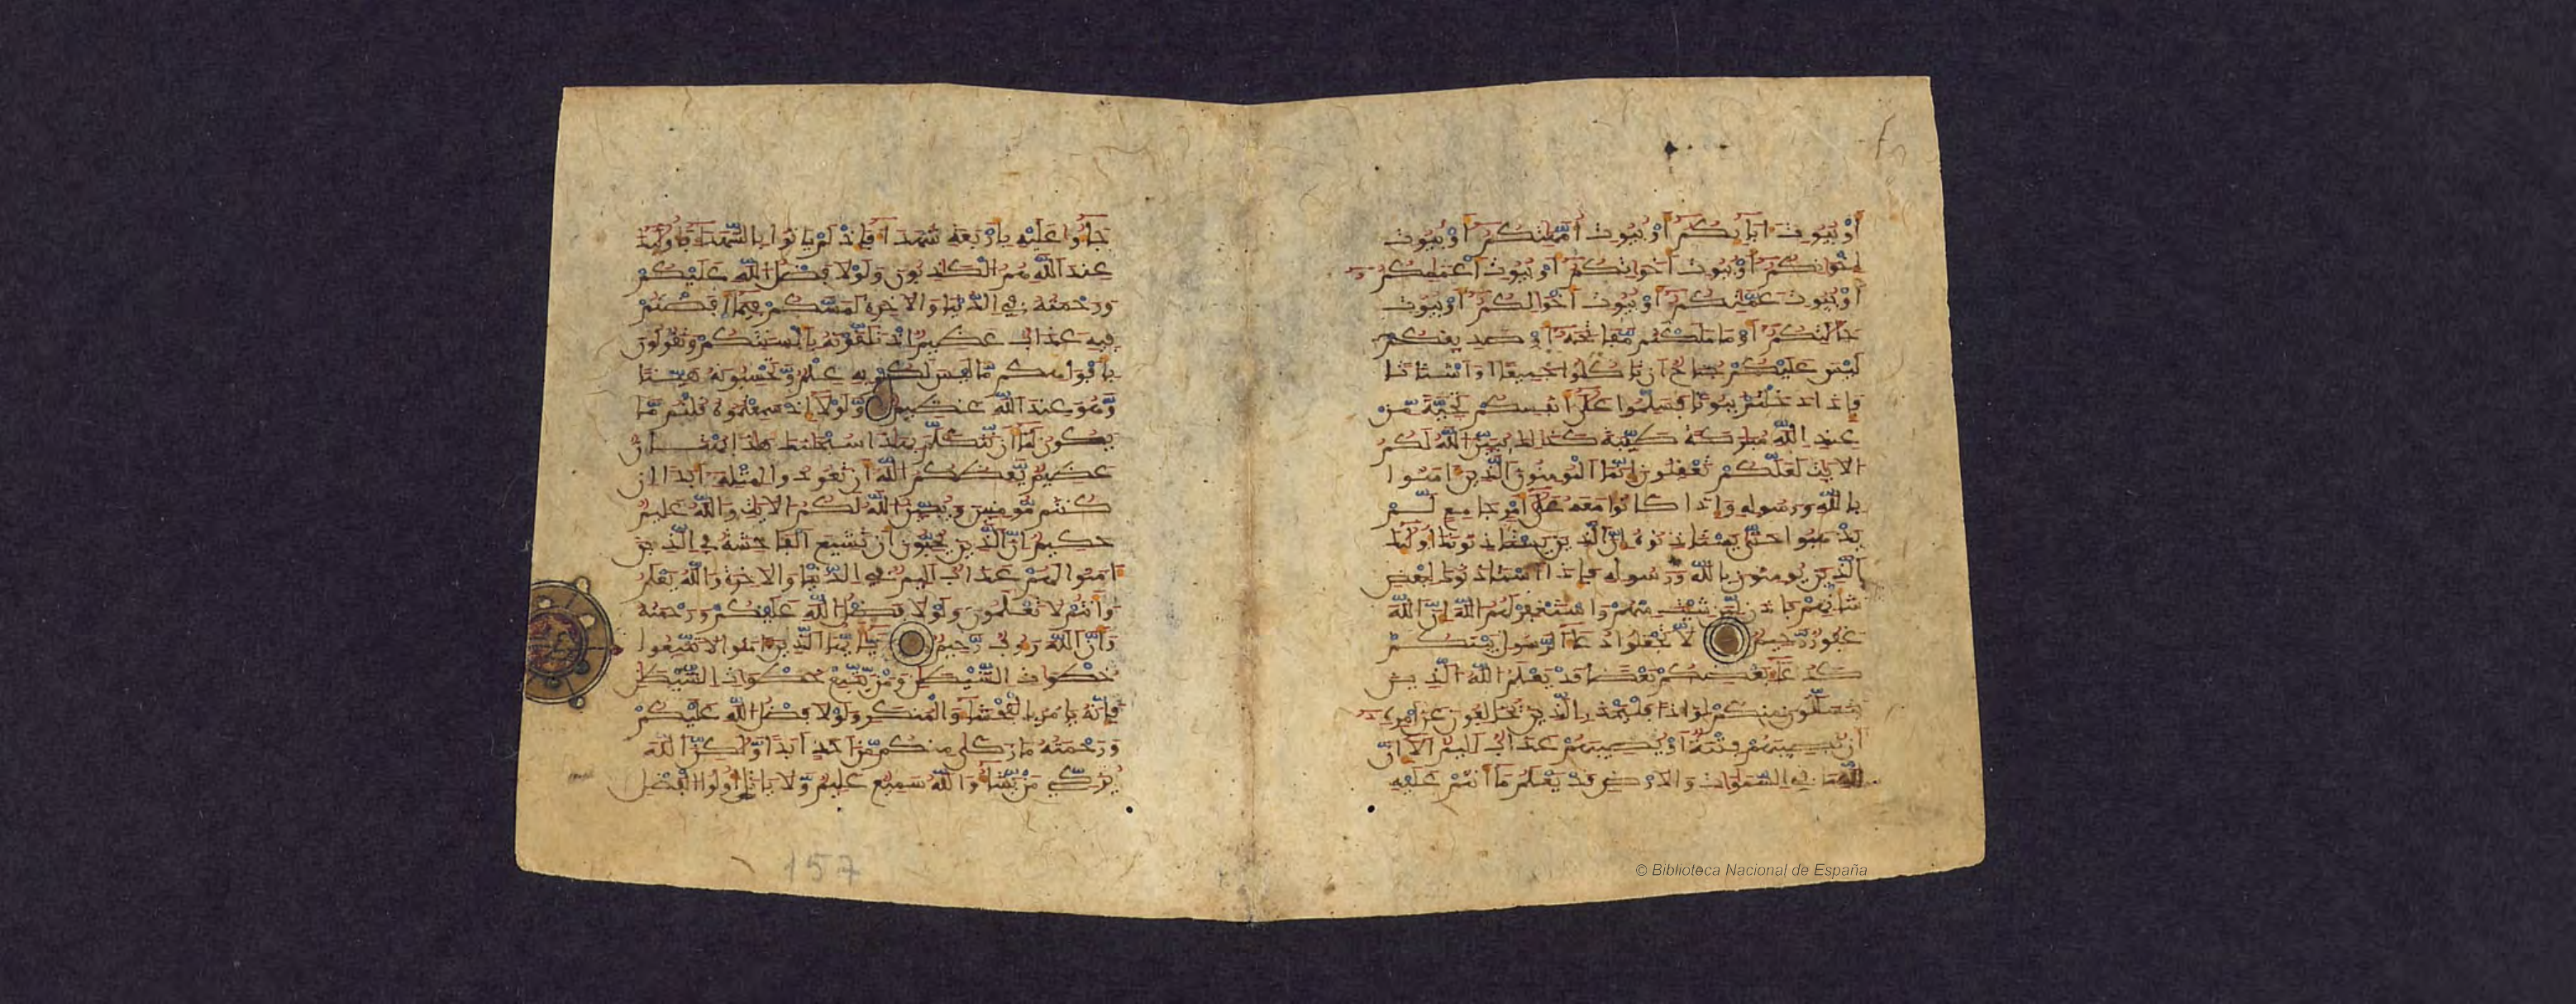 أَوْ بُيُوتِ ءَابَآئِكُمُ أَوْ بُيُوتِ أُمَّهَٰتِكُمُ أَوْ بُيُوتِ
إِخْوَٰنِكُمُ أَوْ بُيُوتِ أَخَوَٰتِكُمُ أَوْ بُيُوتِ أَعْمَٰمِكُمُ
أَوْ بُيُوتِ عَمَّٰتِكُمُ أَوْ بُيُوتِ أَخْوَٰلِكُمُ أَوْ بُيُوتِ
خَٰلَٰتِكُمُ أَوْ مَا مَلَكْتُم مَّفَاتِحَهُ أَوْ صَدِيقِكُمْ
لَيْسَ عَلَيْكُمْ جُنَاحٌ أَن تَاكُلُوا جَمِيعًا أَوَ اشْتَاتًا
فَإِذَا دَخَلْتُم بُيُوتًا فَسَلِّمُوا عَلَىٰ أَنفُسِكُمْ تَحِيَّةً مِّنْ
عِندِ اللَّهِ مُبَٰرَكَةً طَيِّبَةً كَذَٰلِكَ يُبَيِّنُ اللَّهُ لَكُمُ
الَايَٰتِ لَعَلَّكُمْ تَعْقِلُونَ إِنَّمَا الْمُومِنُونَ الَّذِينَ ءَامَنُوا
بِاللَّهِ وَرَسُولِهِ وَإِذَا كَانُوا مَعَهُ عَلَىٰ أَمْرٍ جَامِعٍ لَّمْ
يَذْهَبُوا حَتَّىٰ يَسْتَاذِنُوهُ إِنَّ الَّذِينَ يَسْتَاذِنُونَكَ أُولَٰئِكَ
الَّذِينَ يُومِنُونَ بِاللَّهِ وَرَسُولِهِ فَإِذَا اسْتَاذَنُوكَ لِبَعْضِ
شَانِهِمْ فَاذَن لِّمَن شِيتَ مِنْهُمْ وَاسْتَغْفِرْ لَهُمُ اللَّهَ إِنَّ اللَّهَ
غَفُورٌ رَّحِيمٌ لَّا تَجْعَلُوا دُعَآءَ الرَّسُولِ بَيْنَكُمْ
كَدُعَآءِ بَعْضِكُم بَعْضًا قَدْ يَعْلَمُ اللَّهُ الَّذِينَ
يَتَسَلَّلُونَ مِنكُمْ لِوَاذًا فَلْيَحْذَرِ الَّذِينَ يُخَالِفُونَ عَنَ امْرِهِ
أَن تُصِيبَهُمْ فِتْنَةٌ أَوْ يُصِيبَهُمْ عَذَابٌ اَلِيمٌ أَلَا إِنَّ
لِلَّهِ مَا فِي السَّمَٰوَٰتِ وَالَارْضِ قَدْ يَعْلَمُ مَا أَنتُمْ عَلَيْهِ
جَآءُو عَلَيْهِ بِأَرْبَعَةِ شُهَدَآءَ فَإِذْ لَمْ يَاتُوا بِالشُّهَدَآءِ فَأُولَٰئِكَ
عِندَ اللَّهِ هُمُ الْكَٰذِبُونَ وَلَوْلَا فَضْلُ اللَّهِ عَلَيْكُمْ
وَرَحْمَتُهُ فِي الدُّنْيَا وَالَاخِرَةِ لَمَسَّكُمْ فِيمَا أَفَضْتُمْ
فِيهِ عَذَابٌ عَظِيمٌ إِذْ تَلَقَّوْنَهُ بِأَلْسِنَتِكُمْ وَتَقُولُونَ
بِأَفْوَاهِكُم مَّا لَيْسَ لَكُم بِهِ عِلْمٌ وَتَحْسِبُونَهُ هَيِّنًا
وَهُوَ عِندَ اللَّهِ عَظِيمٌ وَلَوْلَا إِذْ سَمِعْتُمُوهُ قُلْتُم مَّا
يَكُونُ لَنَا أَن نَّتَكَلَّمَ بِهَٰذَا سُبْحَٰنَكَ هَٰذَا بُهْتَٰنٌ
عَظِيمٌ يَعِظُكُمُ اللَّهُ أَن تَعُودُوا لِمِثْلِهِ أَبَدًا إِن
كُنتُم مُّومِنِينَ وَيُبَيِّنُ اللَّهُ لَكُمُ الَايَٰتِ وَاللَّهُ عَلِيمٌ
حَكِيمٌ إِنَّ الَّذِينَ يُحِبُّونَ أَن تَشِيعَ الْفَاحِشَةُ فِي الَّذِينَ
ءَامَنُوا لَهُمْ عَذَابٌ اَلِيمٌ فِي الدُّنْيَا وَالَاخِرَةِ وَاللَّهُ يَعْلَمُ
وَأَنتُمْ لَا تَعْلَمُونَ وَلَوْلَا فَضْلُ اللَّهِ عَلَيْكُمْ وَرَحْمَتُهُ
وَأَنَّ اللَّهَ رَءُوفٌ رَّحِيمٌ يَٰأَيُّهَا الَّذِينَ ءَامَنُوا لَا تَتَّبِعُوا
خُطْوَاتِ الشَّيْطَٰنِ وَمَن يَتَّبِعْ خُطْوَاتِ الشَّيْطَٰنِ
فَإِنَّهُ يَامُرُ بِالْفَحْشَآءِ وَالْمُنكَرِ وَلَوْلَا فَضْلُ اللَّهِ عَلَيْكُمْ
وَرَحْمَتُهُ مَا زَكَىٰ مِنكُم مِّنَ اَحَدٍ اَبَدًا وَلَٰكِنَّ اللَّهَ
يُزَكِّي مَن يَشَآءُ وَاللَّهُ سَمِيعٌ عَلِيمٌ وَلَا يَاتَلِ أُولُوا الْفَضْلِ
157
© Biblioteca Nacional de España